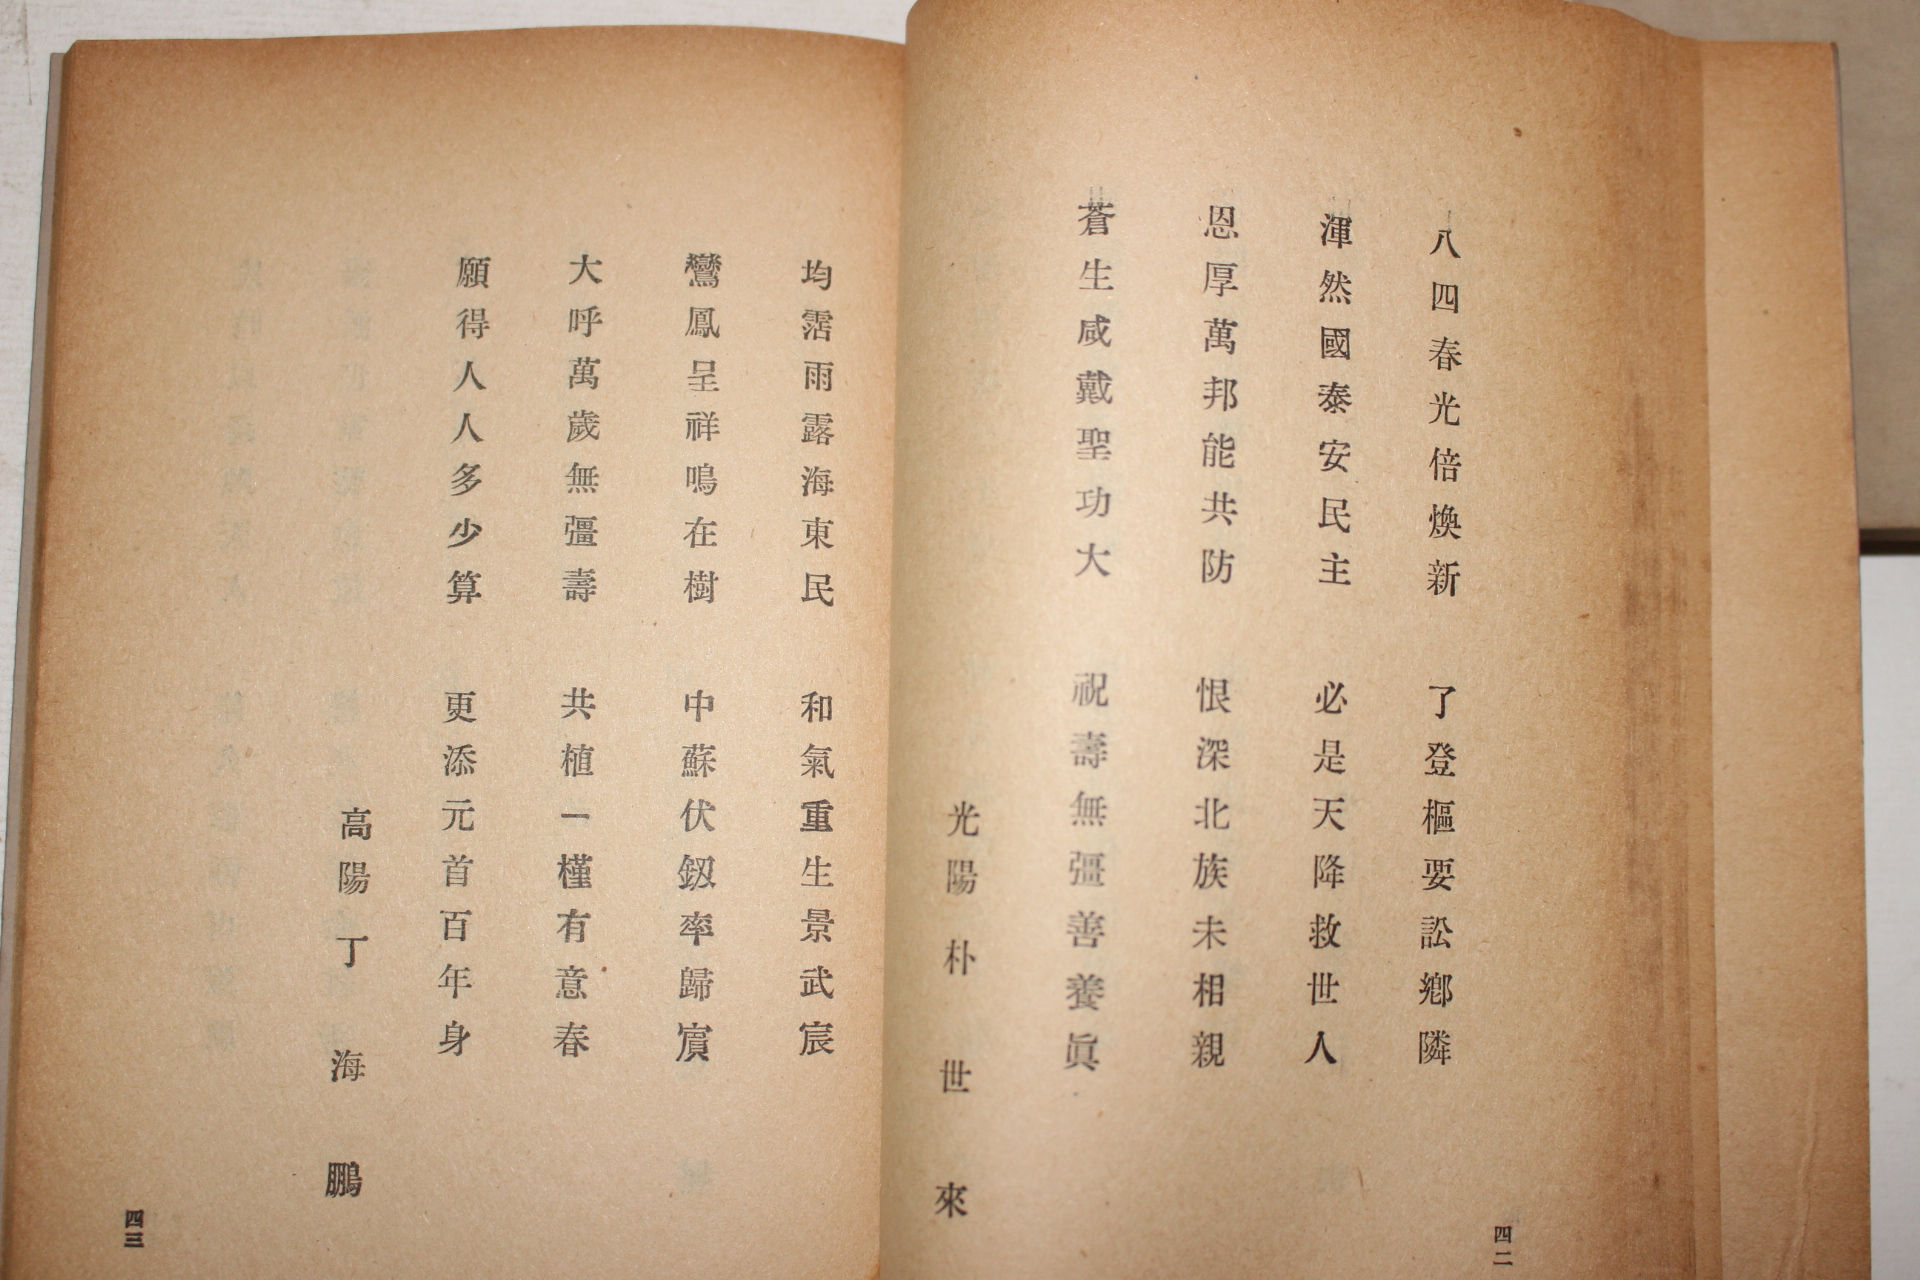 八四春光倍煥新　了登樞要訟鄕隣
渾然國泰安民主　必是天降救世人
恩厚萬邦能共防　恨深北族未相親
蒼生咸戴聖功大　祝壽無彊善養眞
光陽 朴世來
四二
均霑雨露海東民　和氣重生景武宸
鸞鳳呈祥鳴在樹　中蘇伏釼率歸賔
大呼萬歲無彊壽　共植一槿有意春
願得人人多少算　更添元首百年身
高陽 丁海鵬
四三